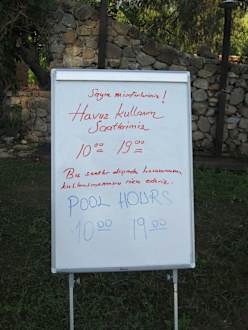 Sayın misafirlerimiz!
Havuz Kullanım
Saatlerimiz
10 00 19 00
Bu saatler dışında havuzumuzu
kullanmamanızı rica ederiz.
POOL HOURS
10 00 19 00